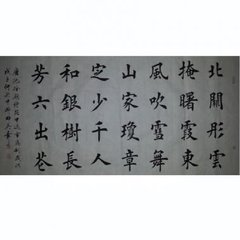 北闕彤雲
掩曙霞東
風吹雪舞
山家瓊章
定少千人
和銀樹長
芳六出花